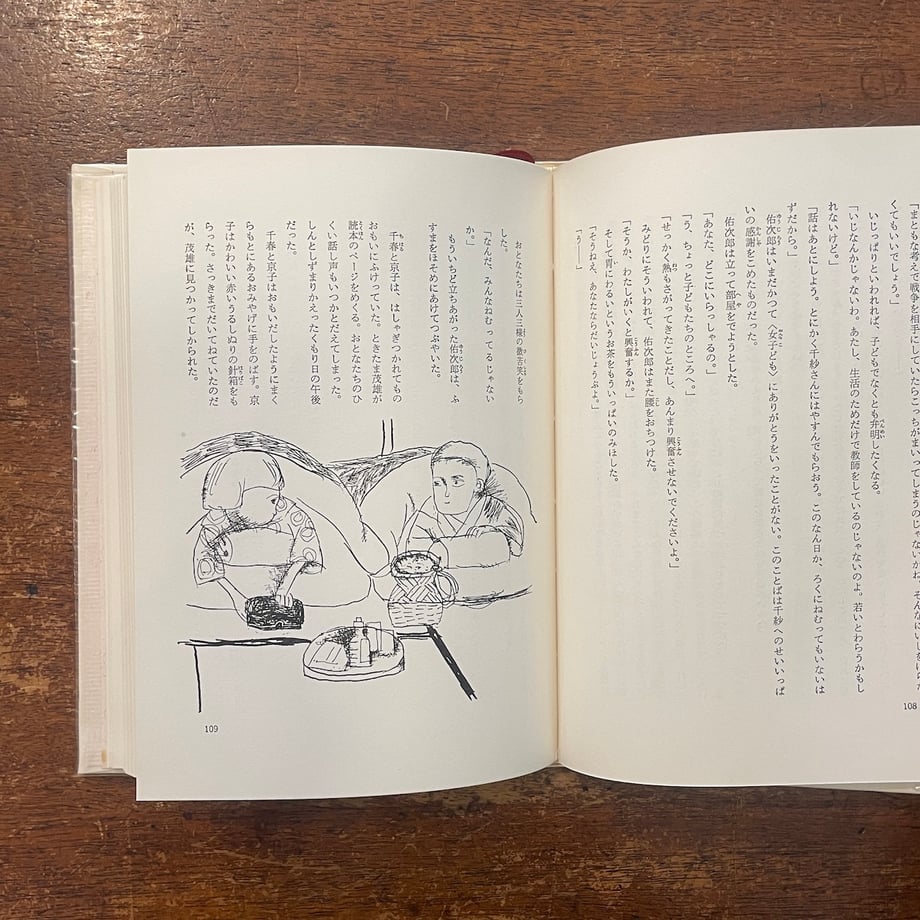 「まともな考えで戦争を相手にしていたらこっちがまいってしまうのじゃないかね。そんなにしをいらだ
くてもいいでしょう。」
いじっぱりといわれれば、子どもでなくとも弁明したくなる。
「いじなんかじゃないわ。あたし、生活のためだけで教師をしているのじゃないのよ。若いとわらうかもし
れないけど。」
「話はあとにしよう。とにかく千紗さんにはやすんでもらおう。このなん日か、ろくにねむってもいないは
ずだから。」
佑次郎はいまだかつて〈女子ども〉にありがとうをいったことがない。このことばは千紗へのせいいっぱ
いの感謝をこめたものだった。
佑次郎は立って部屋をでようとした。
「あなた、どこにいらっしゃるの。」
「う、ちょっと子どもたちのところへ。」
「せっかく熱もさがってきたことだし、あんまり興奮させないでくださいよ。」
みどりにそういわれて、佑次郎はまた腰をおちつけた。
「そうか、わたしがいくと興奮するか。」
そして胃にわるいというお茶をもういっぱいのみほした。
「そうねえ、あなたならだいじょうぶよ。」
「う——」
108
おとなたちは三人三様の微苦笑をもら
した。
「なんだ、みんなねむってるじゃない
か。」
もういちど立ちあがった佑次郎は、ふ
すまをほそめにあけてつぶやいた。
千春と京子は、はしゃぎつかれてもの
おもいにふけっていた。ときたま茂雄が
読本のページをめくる。おとなたちのひ
くい話し声もいつかとだえてしまった。
しんとしずまりかえったくもり日の午後
だった。
千春と京子はおもいだしたようにまく
らもとにあるおみやげに手をのばす。京
子はかわいい赤いうるしぬりの針箱をも
らった。さっきまでだいてねていたのだ
が、茂雄に見つかってしかられた。
109